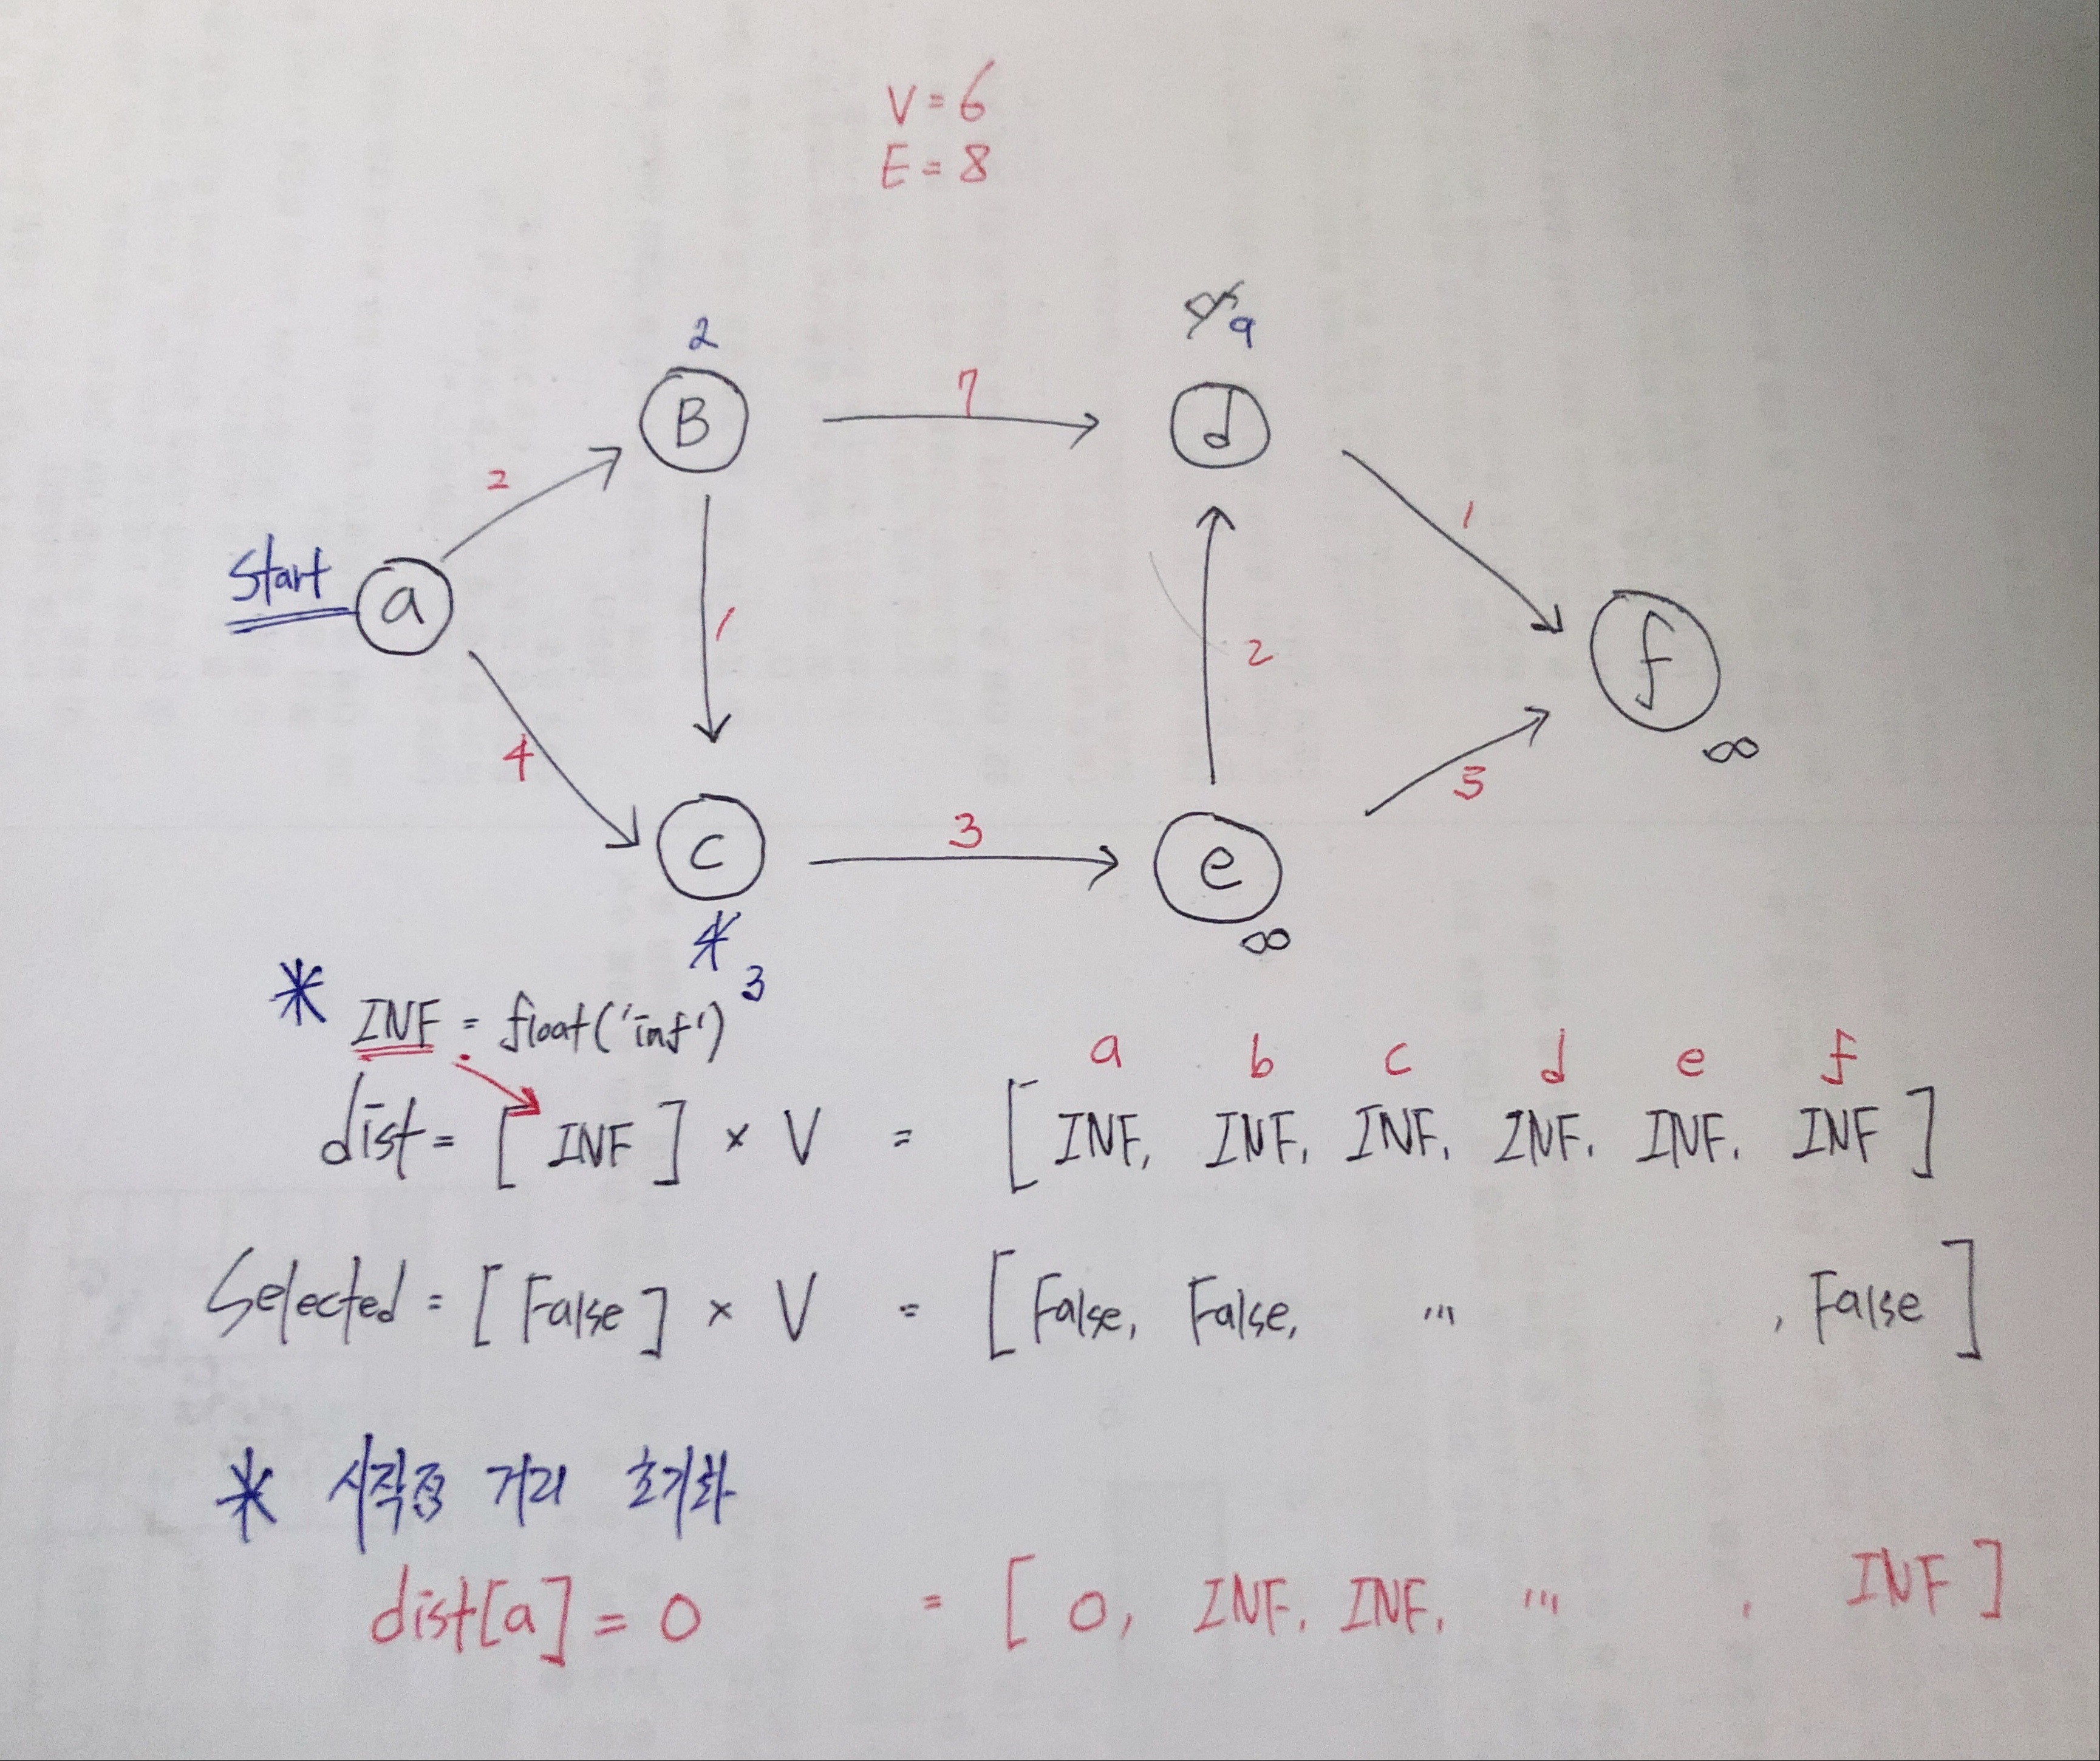 V = 6
E = 8
2
∞ 9
B
7
d
2
1
Start
a
1
2
f
∞
4
5
c
3
e
4 3
∞
* INF = float('inf')
a b c d e f
dist = [ INF ] × V = [ INF, INF, INF, INF, INF, INF ]
Selected = [ False ] × V = [ False, False, ... , False ]
* 시작점 거리 초기화
dist[a] = 0 = [ 0, INF, INF, ... , INF ]